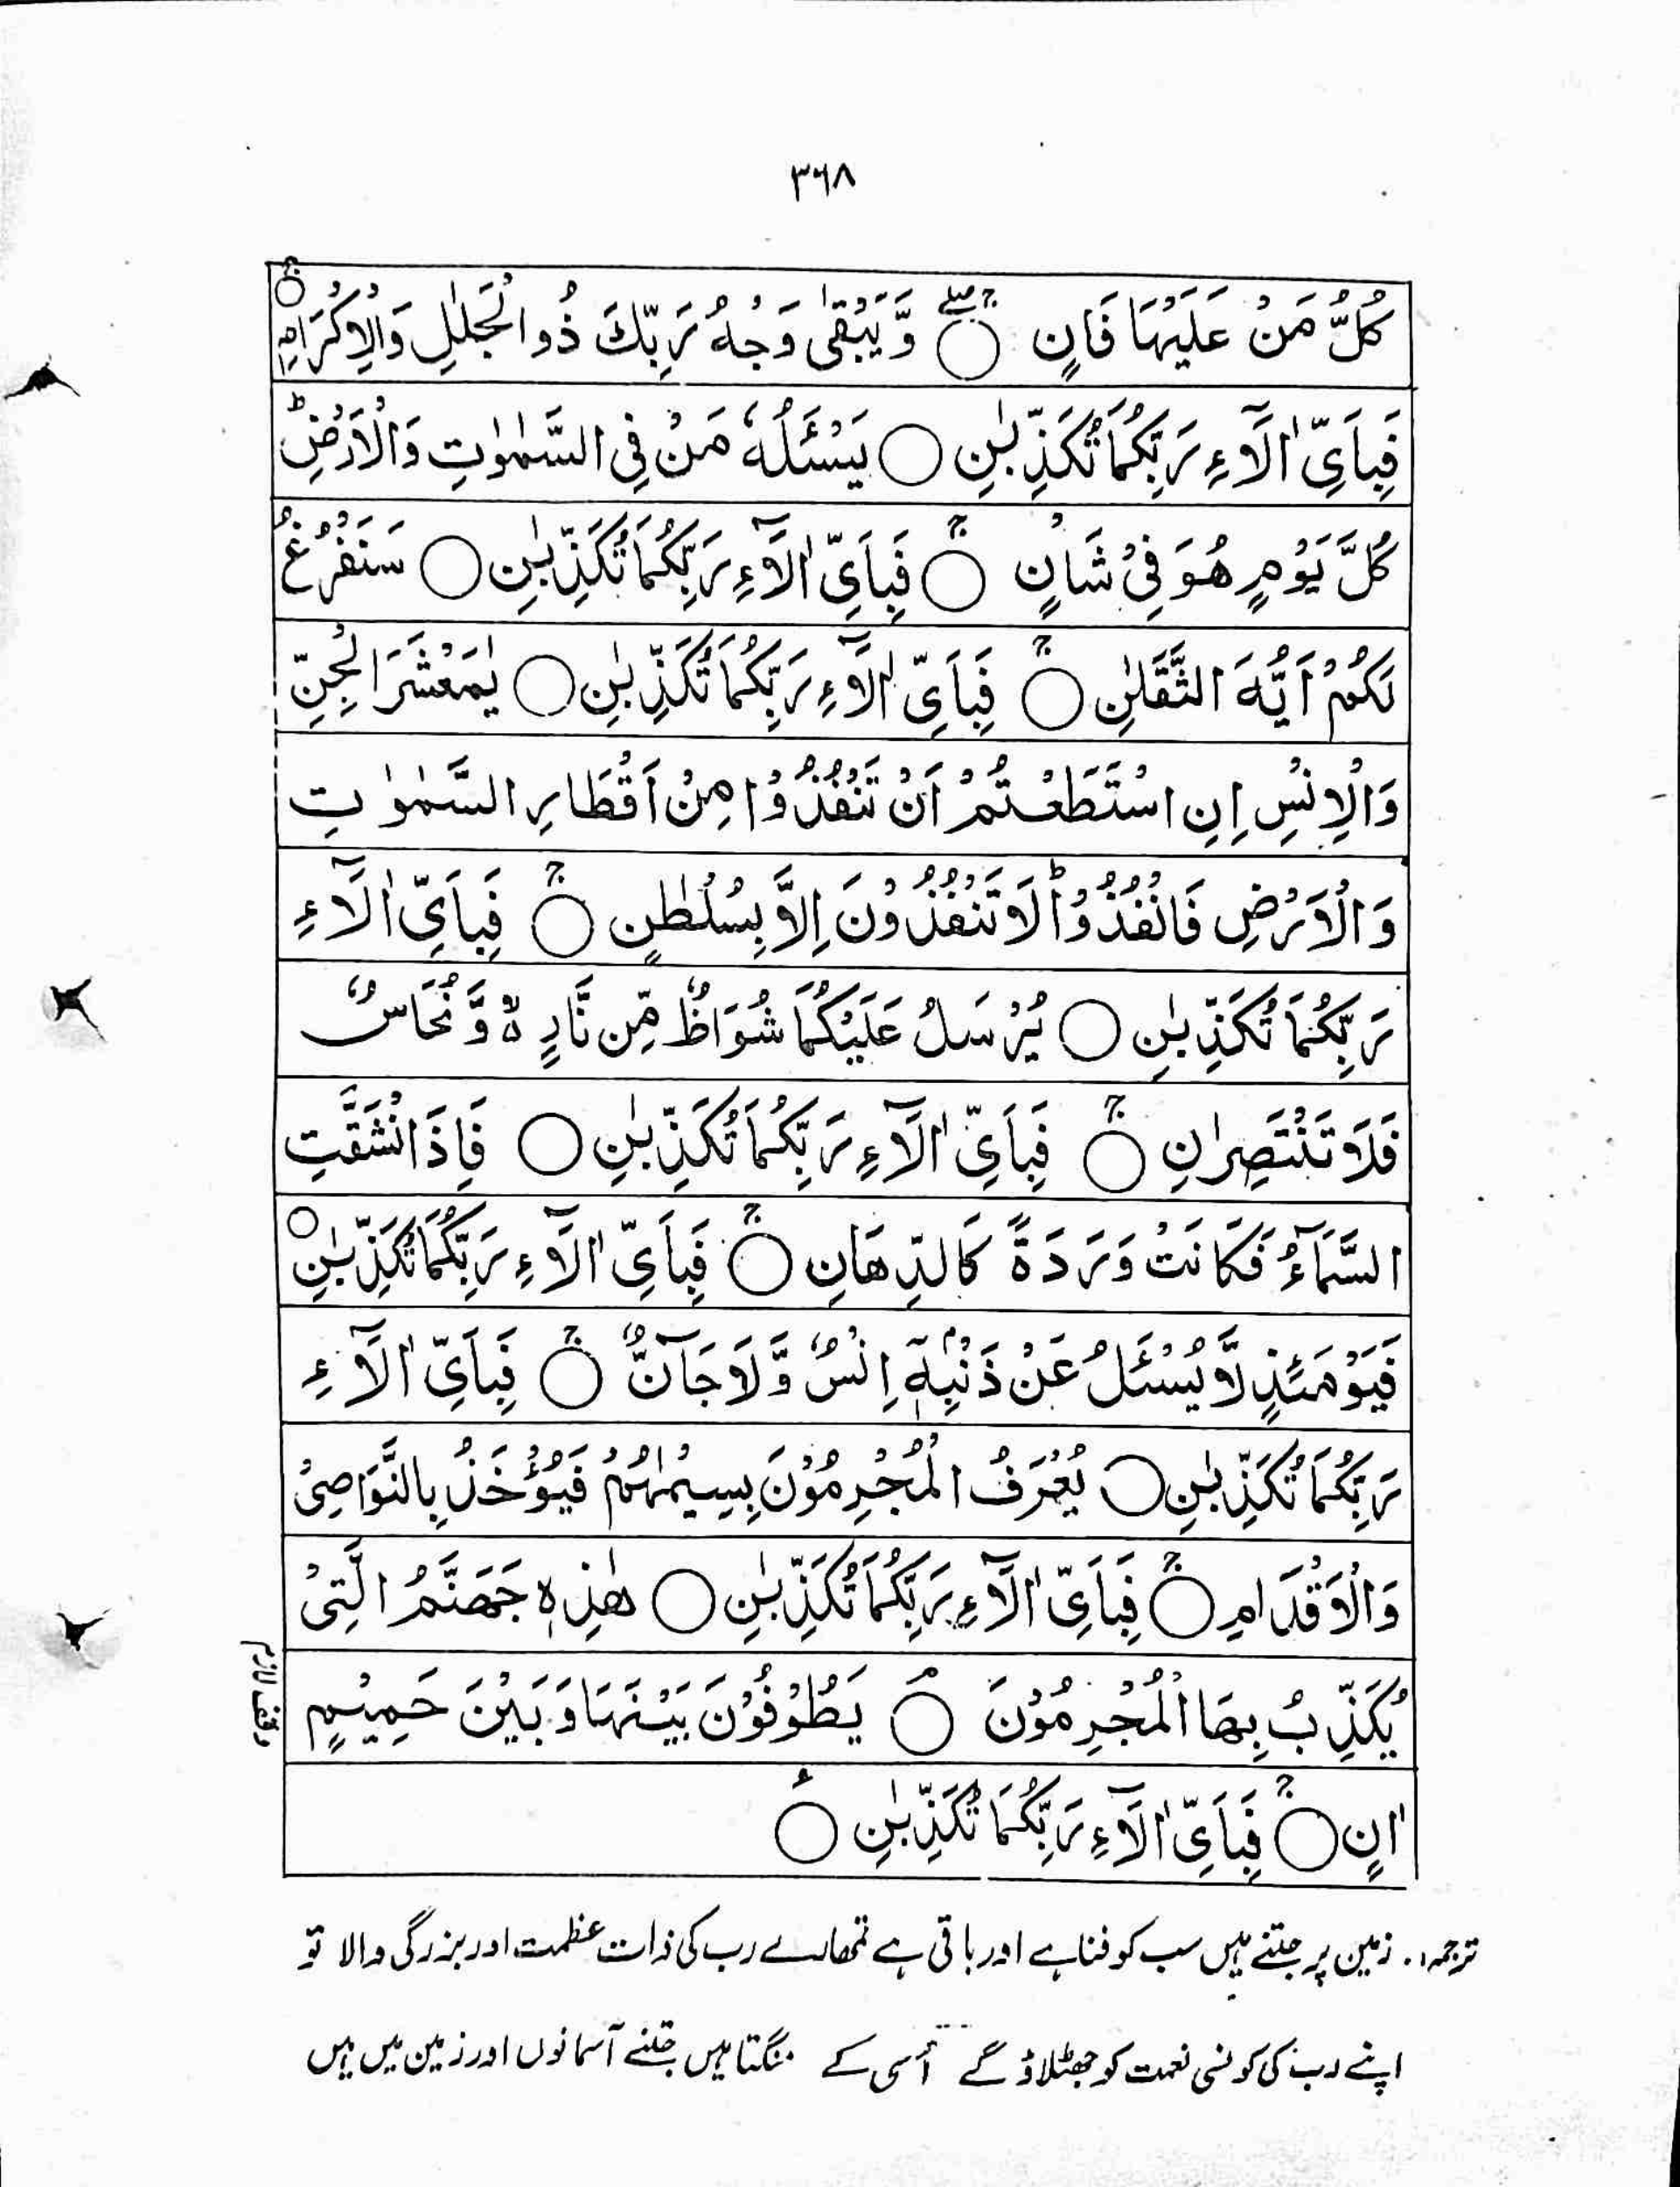 ۳۶۸
كُلُّ مَنْ عَلَيْهَا فَانٍ ۝ۚۖ وَّيَبْقٰى وَجْهُ رَبِّكَ ذُو الْجَلٰلِ وَالْاِكْرَامِ ۝ۚ
فَبِاَيِّ اٰلَآءِ رَبِّكُمَا تُكَذِّبٰنِ ۝ يَسْـَٔلُهٗ مَنْ فِي السَّمٰوٰتِ وَالْاَرْضِ ؕ
كُلَّ يَوْمٍ هُوَ فِيْ شَاْنٍ ۝ۚ فَبِاَيِّ اٰلَآءِ رَبِّكُمَا تُكَذِّبٰنِ ۝ سَنَفْرُغُ
لَكُمْ اَيُّهَ الثَّقَلٰنِ ۝ۚ فَبِاَيِّ اٰلَآءِ رَبِّكُمَا تُكَذِّبٰنِ ۝ يٰمَعْشَرَ الْجِنِّ
وَالْاِنْسِ اِنِ اسْتَطَعْتُمْ اَنْ تَنْفُذُوْا مِنْ اَقْطَارِ السَّمٰوٰتِ
وَالْاَرْضِ فَانْفُذُوْا ؕ لَا تَنْفُذُوْنَ اِلَّا بِسُلْطٰنٍ ۝ۚ فَبِاَيِّ اٰلَآءِ
رَبِّكُمَا تُكَذِّبٰنِ ۝ يُرْسَلُ عَلَيْكُمَا شُوَاظٌ مِّن نَّارٍ ۙ وَّنُحَاسٌ
فَلَا تَنْتَصِرٰنِ ۝ۚ فَبِاَيِّ اٰلَآءِ رَبِّكُمَا تُكَذِّبٰنِ ۝ فَاِذَا انْشَقَّتِ
السَّمَآءُ فَكَانَتْ وَرَدَةً كَالدِّهَانِ ۝ۚ فَبِاَيِّ اٰلَآءِ رَبِّكُمَا تُكَذِّبٰنِ ۝
فَيَوْمَئِذٍ لَّا يُسْـَٔلُ عَنْ ذَنْۢبِهٖۤ اِنْسٌ وَّلَا جَآنٌّ ۝ۚ فَبِاَيِّ اٰلَآءِ
رَبِّكُمَا تُكَذِّبٰنِ ۝ يُعْرَفُ الْمُجْرِمُوْنَ بِسِيْمٰهُمْ فَيُؤْخَذُ بِالنَّوَاصِيْ
وَالْاَقْدَامِ ۝ۚ فَبِاَيِّ اٰلَآءِ رَبِّكُمَا تُكَذِّبٰنِ ۝ هٰذِهٖ جَهَنَّمُ الَّتِيْ
يُكَذِّبُ بِهَا الْمُجْرِمُوْنَ ۝ۘ يَطُوْفُوْنَ بَيْنَهَا وَبَيْنَ حَمِيْمٍ
وقف لازم
اٰنٍ ۝ۚ فَبِاَيِّ اٰلَآءِ رَبِّكُمَا تُكَذِّبٰنِ ۝ع
ترجمہ:۔ زمین پر جتنے ہیں سب کو فنا ہے اور باقی ہے تمھارے رب کی ذات عظمت اور بزرگی والا تو
اپنے رب کی کونسی نعمت کو جھٹلاؤ گے اُسی کے منگتا ہیں جتنے آسمانوں اور زمین میں ہیں